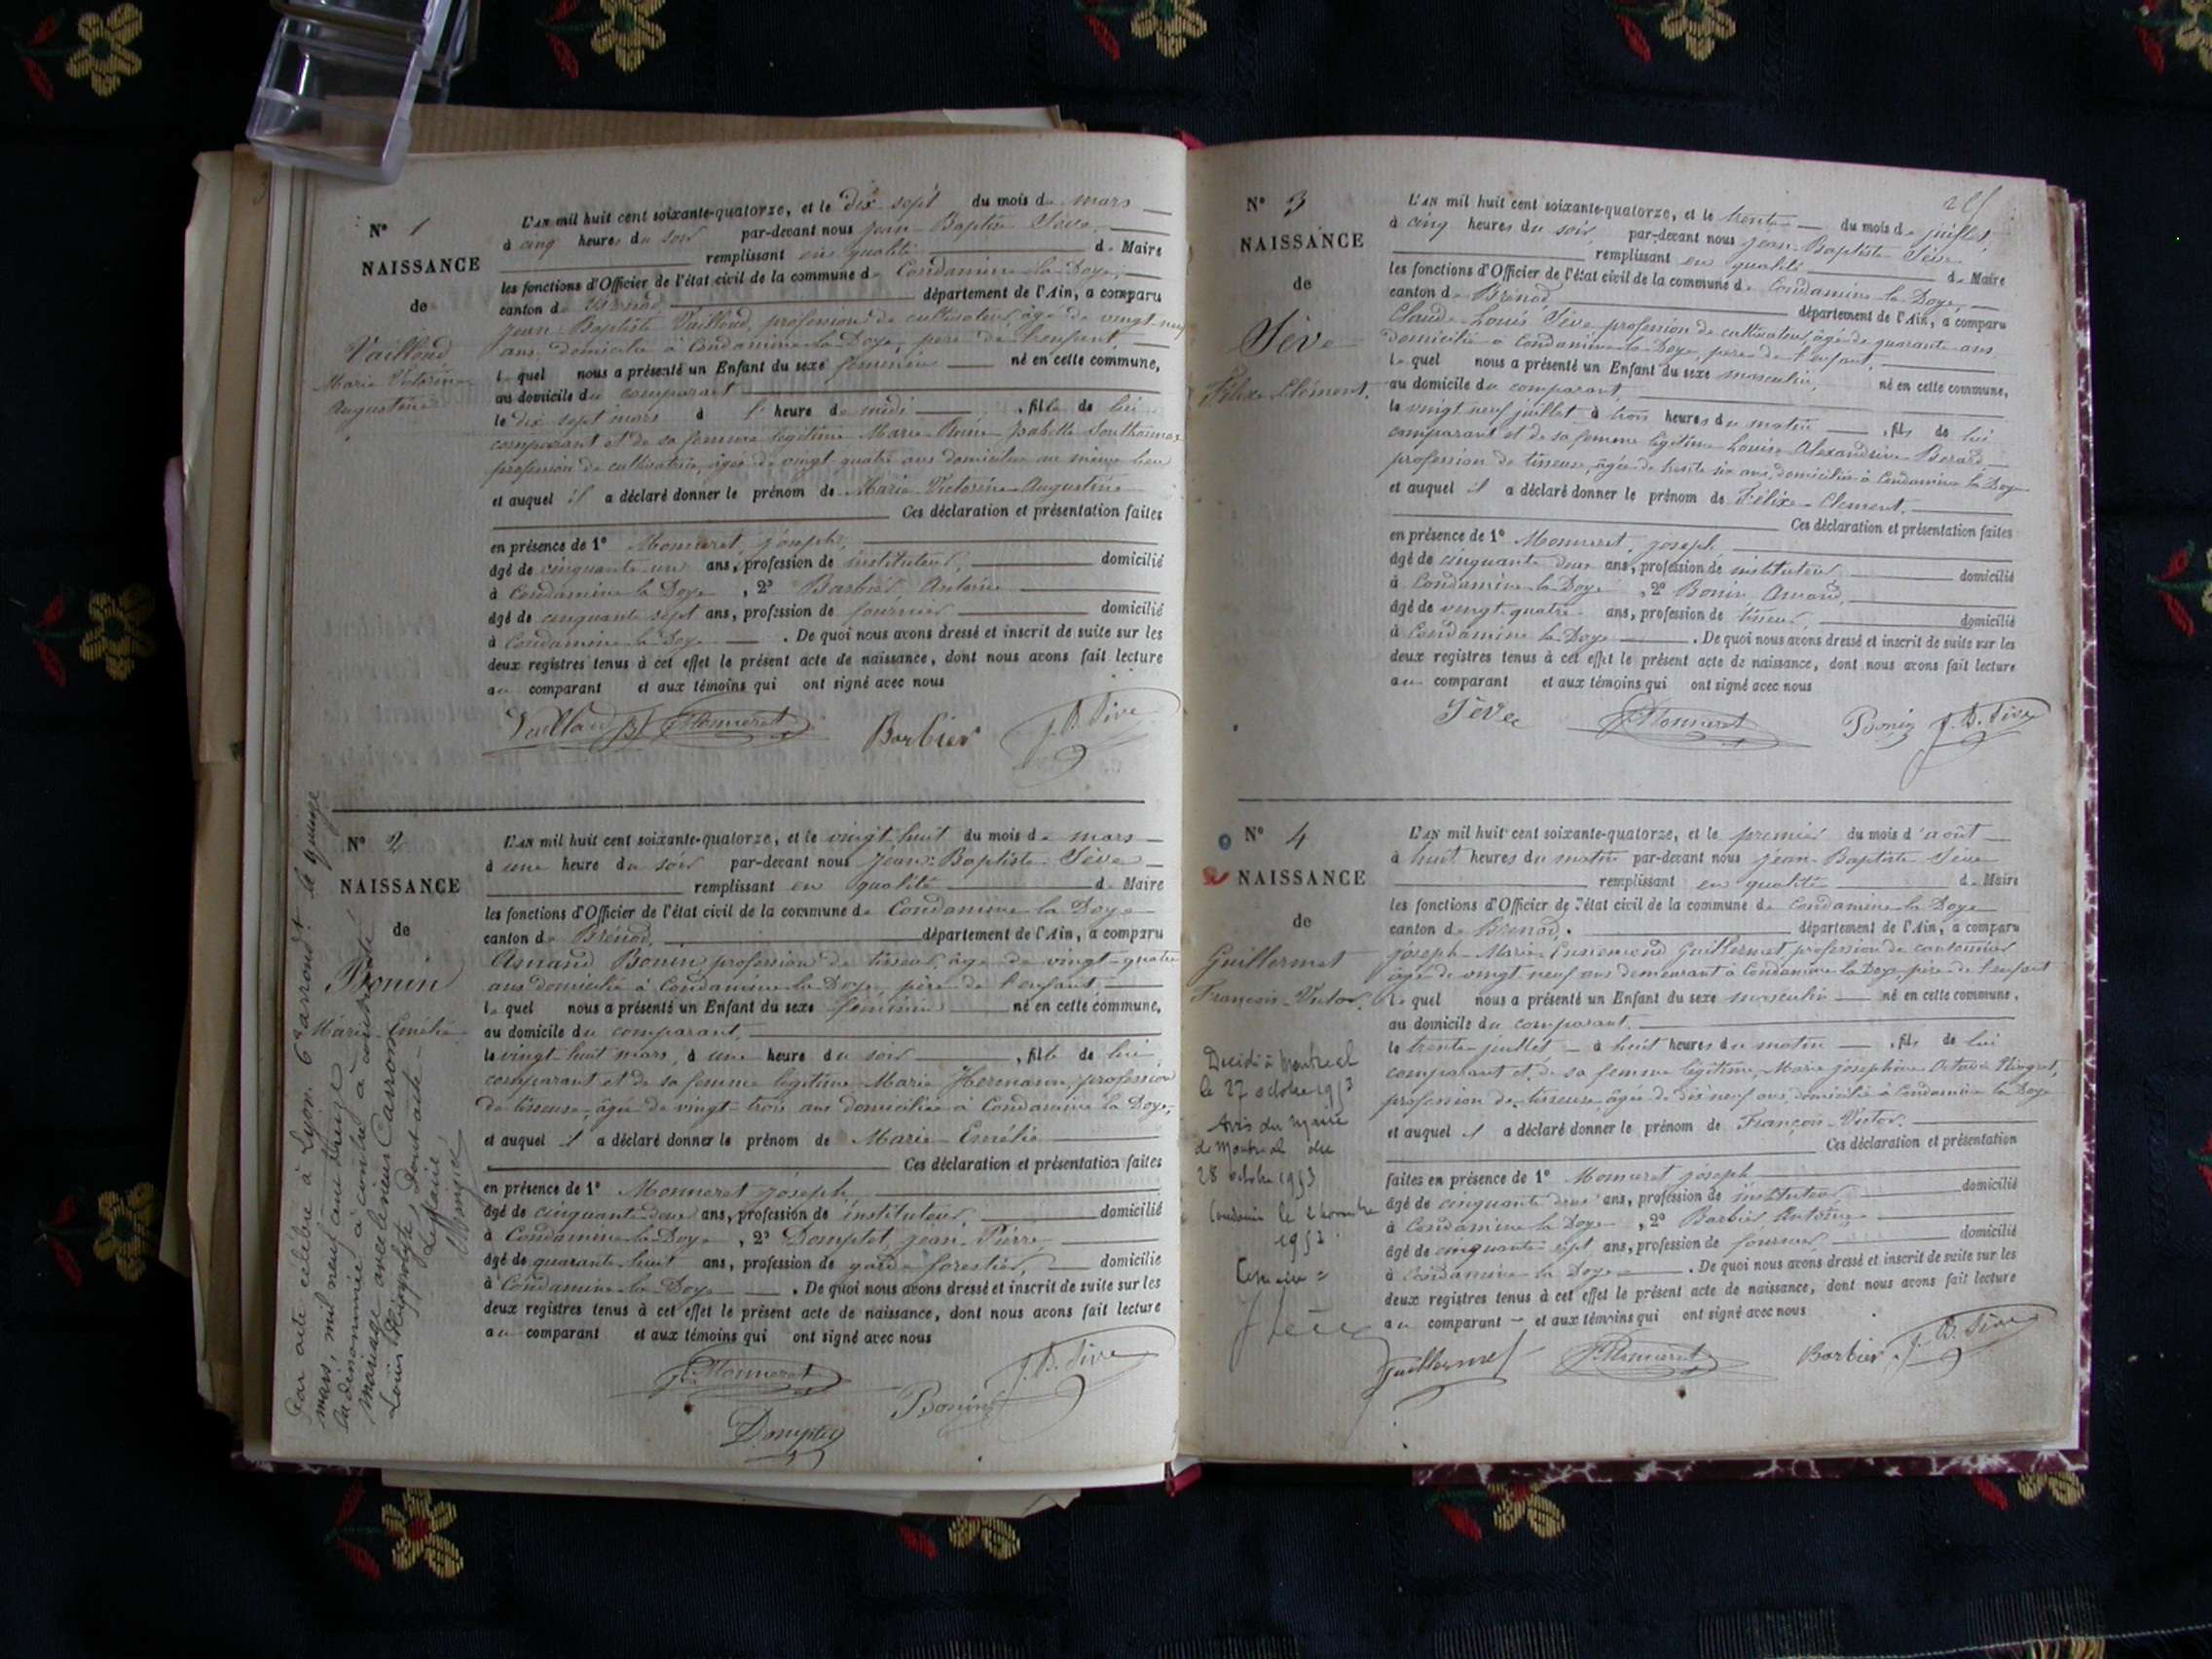 N° 1
NAISSANCE
de
Vailloud
Marie Victorine
Augustine
L'AN mil huit cent soixante-quatorze, et le dix-sept du mois de mars
à cinq heures du soir par-devant nous Jean-Baptiste Sève
remplissant en qualité de Maire
les fonctions d'Officier de l'état civil de la commune de Condamine-la-Doye,
canton de Brénod département de l'Ain, a comparu
Jean-Baptiste Vailloud, profession de cultivateur, âgé de vingt-neuf
ans, domicilié à Condamine-la-Doye, père de l'enfant,
lequel nous a présenté un Enfant du sexe féminin né en cette commune,
au domicile du comparant
le dix sept mars à l' heure de midi , fille de lui
comparant et de sa femme légitime Marie Isabelle
profession de cultivatrice, âgée de vingt-quatre ans domiciliée au même lieu
et auquel il a déclaré donner le prénom de Marie-Victorine-Augustine
Ces déclaration et présentation faites
en présence de 1° Monneret, joseph,
âgé de cinquante-un ans, profession de instituteur, domicilié
à Condamine la Doye , 2° Barbier Antoine
âgé de cinquante sept ans, profession de fournier domicilié
à Condamine-la-Doye . De quoi nous avons dressé et inscrit de suite sur les
deux registres tenus à cet effet le présent acte de naissance, dont nous avons fait lecture
au comparant et aux témoins qui ont signé avec nous
Vailloud JB J. Monneret Barbier J. B. Sève
N° 2
NAISSANCE
de
Bonin
Marie-Emélie
L'AN mil huit cent soixante-quatorze, et le vingt-huit du mois de mars
à une heure du soir par-devant nous Jean-Baptiste Sève
remplissant en qualité de Maire
les fonctions d'Officier de l'état civil de la commune de Condamine la Doye
canton de Brénod, département de l'Ain, a comparu
Amand Bonin, profession de tisseur, âgé de vingt-quatre
ans domicilié à Condamine-la-Doye, père de l'enfant,
lequel nous a présenté un Enfant du sexe féminin né en cette commune,
au domicile du comparant,
le vingt-huit mars, à une heure du soir , fille de lui
comparant et de sa femme légitime Marie Hermann, profession
de tisseuse, âgée de vingt-trois ans domiciliée à Condamine la Doye,
et auquel il a déclaré donner le prénom de Marie-Emélie
Ces déclaration et présentation faites
en présence de 1° Monneret joseph,
âgé de cinquante-deux ans, profession de instituteur, domicilié
à Condamine-la-Doye , 2° Domptet, jean-Pierre,
âgé de quarante-huit ans, profession de garde-forestier, domicilié
à Condamine-la-Doye . De quoi nous avons dressé et inscrit de suite sur les
deux registres tenus à cet effet le présent acte de naissance, dont nous avons fait lecture
au comparant et aux témoins qui ont signé avec nous
J. Monneret Bonin J. B. Sève
Domptet
Par acte célébré à Lyon 6e arrondt le quinze
mars, mil neuf cent treize
la dénommée ci-contre a contracté
mariage avec le sieur Carron
Louis Hippolyte, Dont acte
Le Maire
N° 3
NAISSANCE
de
Sève
Félix-Clément.
L'AN mil huit cent soixante-quatorze, et le trente du mois de juillet,
à cinq heures du soir, par-devant nous Jean-Baptiste Sève
remplissant en qualité de Maire
les fonctions d'Officier de l'état civil de la commune de Condamine-la-Doye,
canton de Brénod département de l'Ain, a comparu
Claude-Louis Sève profession de cultivateur, âgé de quarante ans
domicilié à Condamine-la-Doye, père de l'enfant,
lequel nous a présenté un Enfant du sexe masculin, né en cette commune,
au domicile du comparant,
le vingt neuf juillet à trois heures du matin , fils de lui
comparant et de sa femme légitime Louise Alexandrine Berard,
profession de tisseuse, âgée de trente six ans, domiciliée à Condamine la Doye
et auquel il a déclaré donner le prénom de Félix-Clément,
Ces déclaration et présentation faites
en présence de 1° Monneret, joseph
âgé de cinquante deux ans, profession de instituteur, domicilié
à Condamine-la-Doye , 2° Bonin Amand,
âgé de vingt-quatre ans, profession de tisseur, domicilié
à Condamine la Doye . De quoi nous avons dressé et inscrit de suite sur les
deux registres tenus à cet effet le présent acte de naissance, dont nous avons fait lecture
au comparant et aux témoins qui ont signé avec nous
Sève J. Monneret Bonin J. B. Sève
N° 4
NAISSANCE
de
Guillermet
François-Victor.
L'AN mil huit cent soixante-quatorze, et le premier du mois d'août
à huit heures du matin par-devant nous jean-Baptiste Sève
remplissant en qualité de Maire
les fonctions d'Officier de l'état civil de la commune de Condamine-la-Doye
canton de Brénod, département de l'Ain, a comparu
joseph-Marie Guillermet profession de cantonnier
âgé de vingt neuf ans demeurant à Condamine-la-Doye, père de l'enfant
lequel nous a présenté un Enfant du sexe masculin né en cette commune,
au domicile du comparant.
le trente juillet à huit heures du matin , fils de lui
comparant et de sa femme légitime, Marie-joséphine Octavie
profession de tisseuse âgée de dix neuf ans, domiciliée à Condamine la Doye
et auquel il a déclaré donner le prénom de François-Victor.
Ces déclaration et présentation
faites en présence de 1° Monneret joseph
âgé de cinquante deux ans, profession de instituteur, domicilié
à Condamine la Doye , 2° Barbier Antoine,
âgé de cinquante sept, ans, profession de fournier, domicilié
à Condamine-la-Doye . De quoi nous avons dressé et inscrit de suite sur les
deux registres tenus à cet effet le présent acte de naissance, dont nous avons fait lecture
au comparant et aux témoins qui ont signé avec nous
Guillermet J. Monneret Barbier J. B. Sève
Décédé à Montreal
le 27 octobre 1953
Avis du Maire
de Montreal du
28 octobre 1953
Condamine le 2 novembre
1953
Le maire